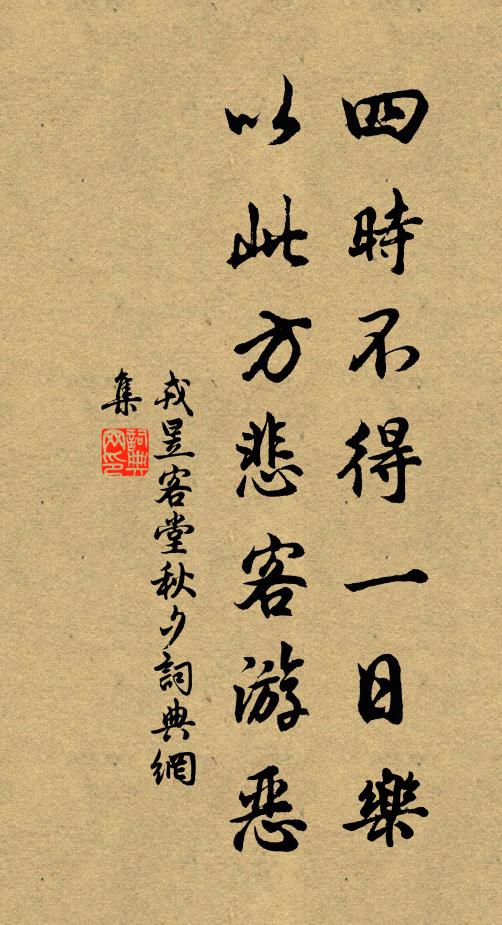 四時不得一日樂
以此方悲客游惡
戎昱客堂秋夕詞典網
集
詞典
网印